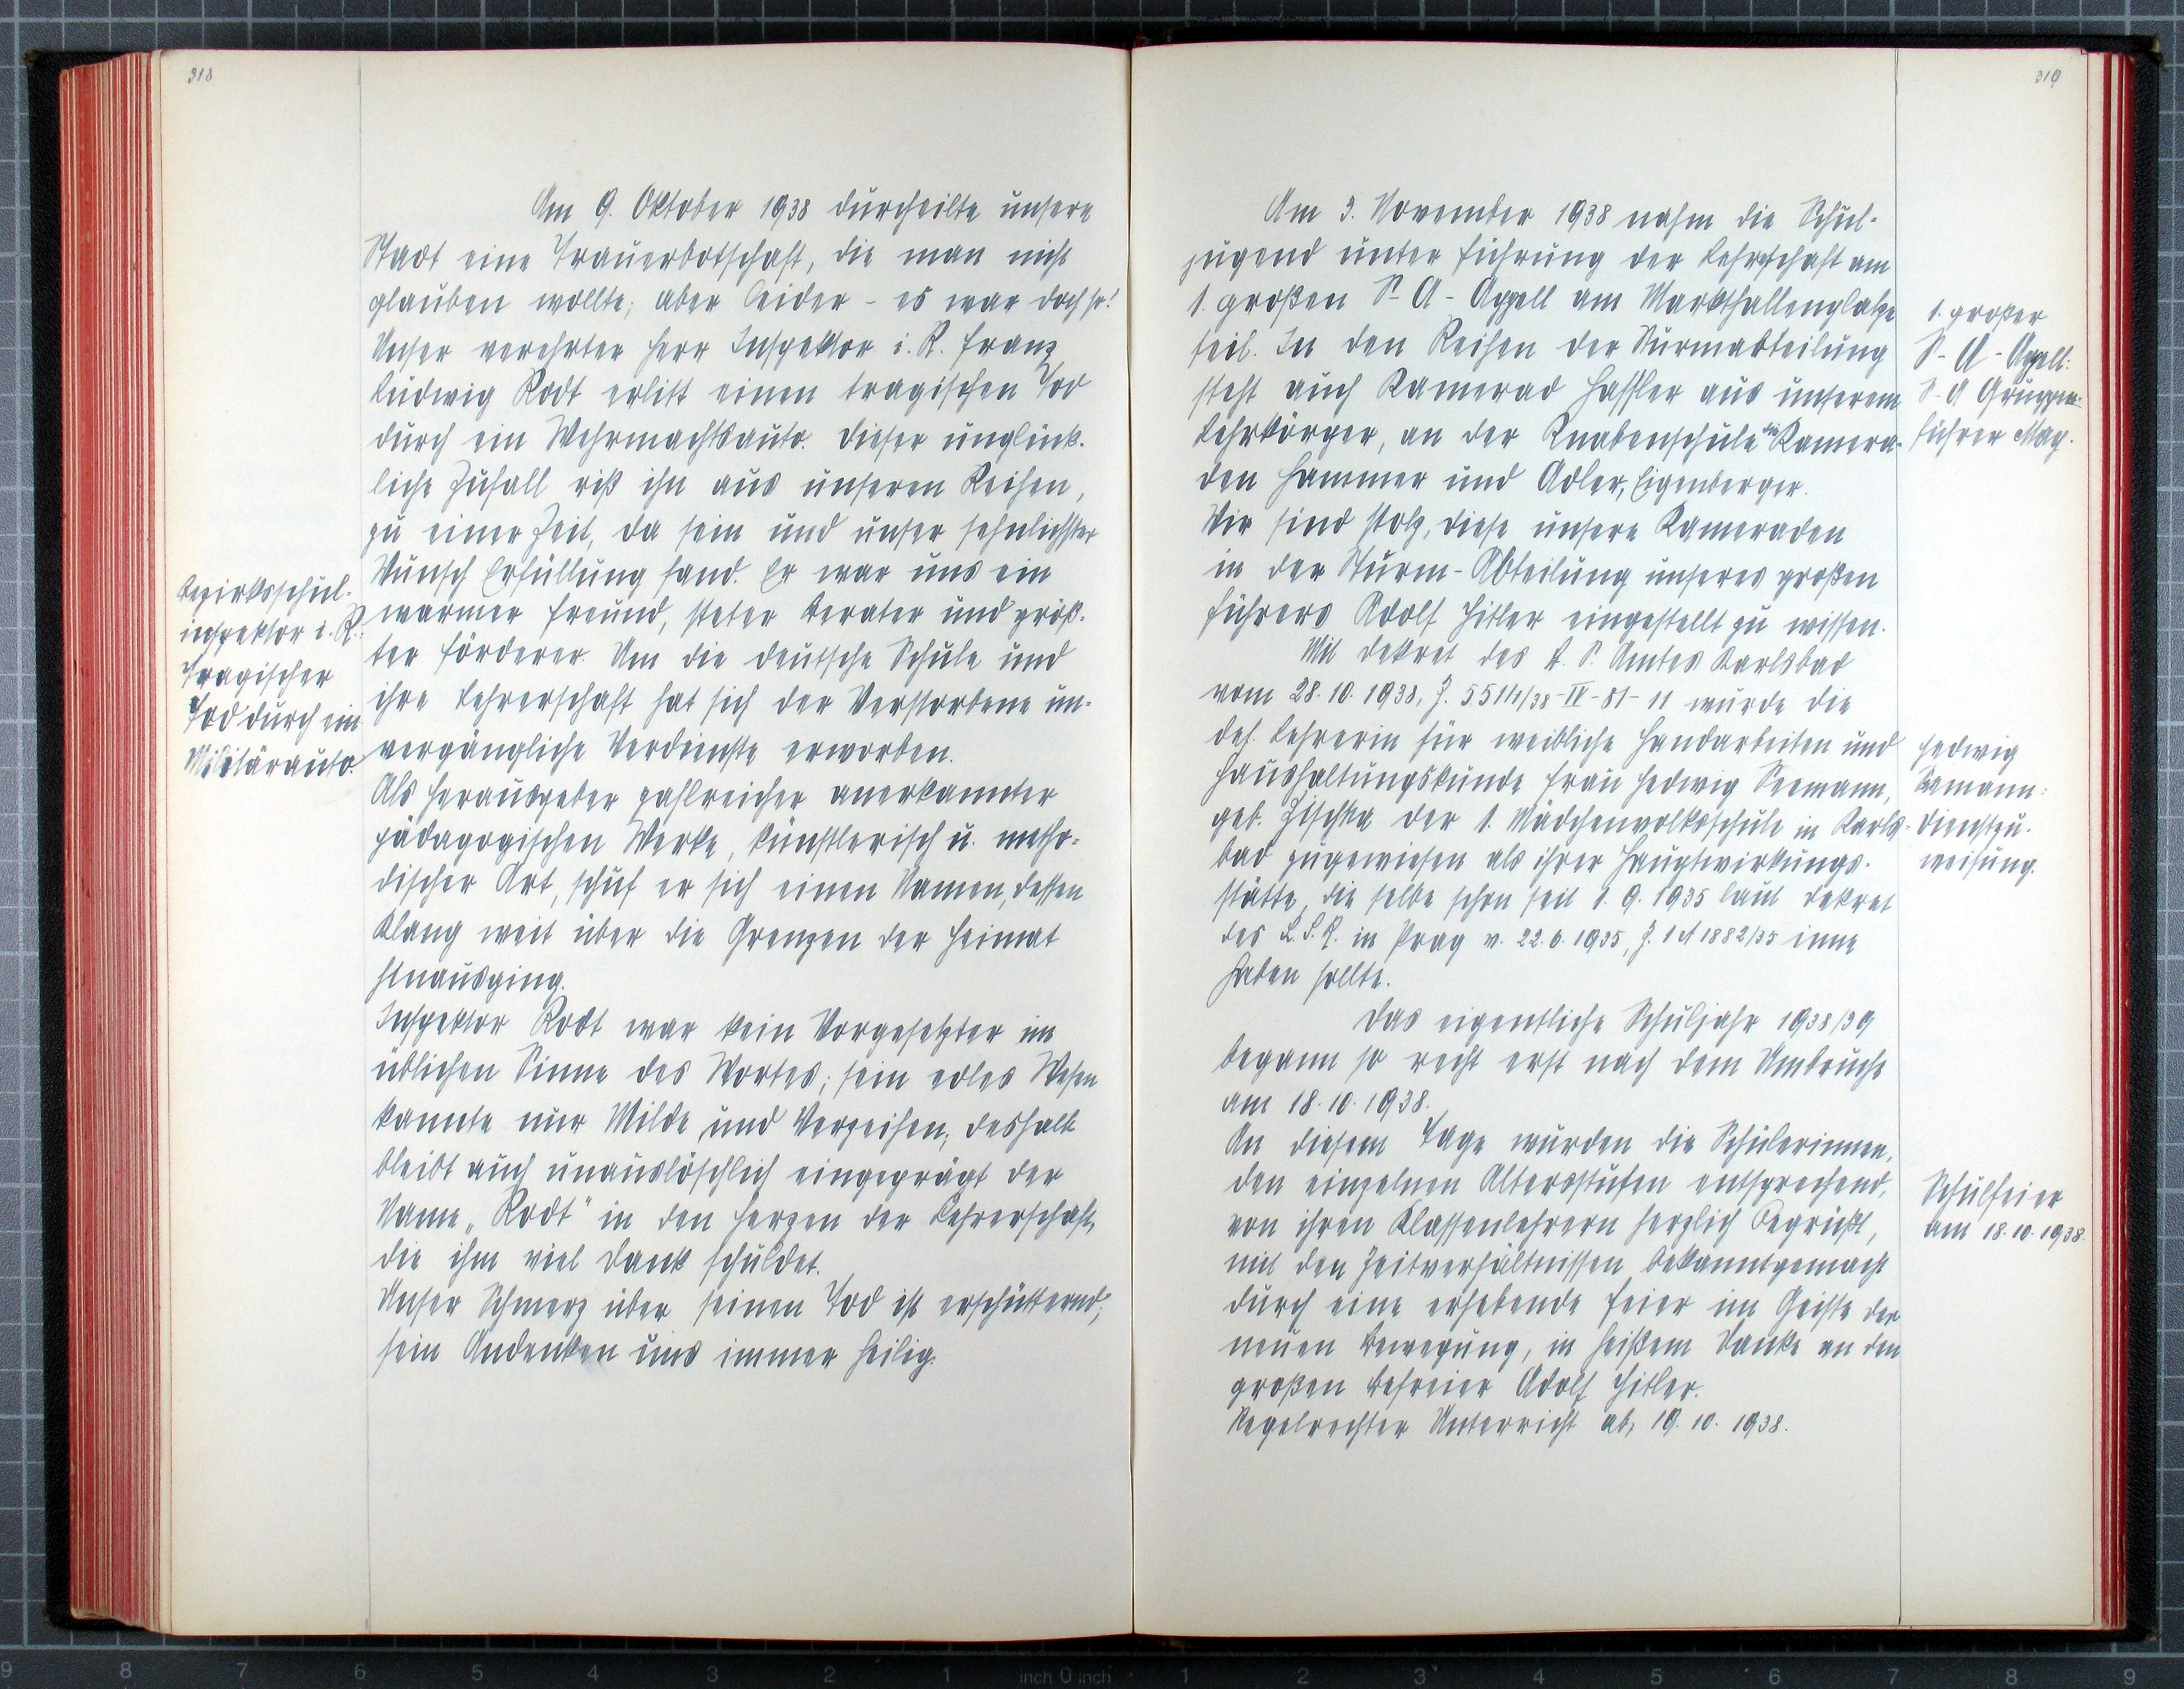 318
Am 9. Oktober 1938 durcheilte unsere
Stadt eine Trauerbotschaft, die man nicht
glauben wollte; aber leider - es war doch so!
Unser verehrter Herr Inspektor i. R. Franz
Ludwig Rodt erlitt einen tragischen Tod
durch ein Wehrmachtsauto. Dieser unglück-
liche Zufall riß ihn aus unseren Reihen,
zu einer Zeit, da sein und unser sehnlichster
Wunsch Erfüllung fand. Er war uns ein
warmer Freund, steter Berater und größ-
ter Förderer. Um die deutsche Schule und
ihre Lehrerschaft hat sich der Verstorbene un-
vergängliche Verdienste erworben.
Als Herausgeber zahlreicher anerkannter
pädagogischen Werke, künstlerisch u. metho-
discher Art, schuf er sich einen Namen, dessen
Klang weit über die Grenzen der Heimat
hinausging.
Inspektor Rodt war kein Vorgesetzter im
üblichen Sinne des Wortes; sein edles Wesen
kannte nur Milde und Verzeihen; deshalb
bleibt auch unauslöschlich eingeprägt der
Name „Rodt" in den Herzen der Lehrerschaft,
die ihm viel Dank schuldet.
Unser Schmerz über seinen Tod ist erschütternd;
sein Andenken uns immer heilig.
Bezirksschul-
inspektor i. R.:
Tragischer
Tod durch ein
Militärauto.
319
Am 3. November 1938 nahm die Schul-
jugend unter Führung der Lehrschaft am
1. großen S-A-Appell am Markthallenplatze
teil. In den Reihen der Sturmabteilung
steht auch Kamerad Hassler aus unserem
Lehrkörper, an der Knabenschule die Kamera-
den Hammer und Adler, Eigenberger.
Wir sind stolz, diese unsere Kameraden
in der Sturm-Abteilung unseres großen
Führers Adolf Hitler eingestellt zu wissen.
Mit Dekret des B. S. Amtes Karlsbad
vom 28. 10. 1938, Z. 5511/1/38-IV-81-11 wurde die
def. Lehrerin für weibliche Handarbeiten und
Haushaltungskunde Frau Hedwig Seemann,
geb. Zischka der 1. Mädchenvolksschule in Karls-
bad zugewiesen als ihrer Hauptwirkungs-
stätte, die selbe schon seit 1. 9. 1935 laut Dekret
des L.S.R. in Prag v. 22. 6. 1935, Z. 1 A 1882/35 inne
haben sollte.
Das eigentliche Schuljahr 1938/39
begann so recht erst nach dem Umbruche
am 18. 10. 1938.
An diesem Tage wurden die Schülerinnen,
den einzelnen Altersstufen entsprechend,
von ihren Klassenlehrern herzlich begrüßt,
mit den Zeitverhältnissen bekanntgemacht
durch eine erhebende Feier im Geiste der
neuen Bewegung, in heißem Danke an den
großen Befreier Adolf Hitler.
Regelrechter Unterricht ab, 19. 10. 1938.
1. großer
S-A-Appell:
S-A Gruppen-
führer May.
Hedwig
Seemann:
Dienstzu-
weisung.
Schulfeier
am 18. 10. 1938.
9 8 7 6 5 4 3 2 1 inch 0 inch 1 2 3 4 5 6 7 8 9